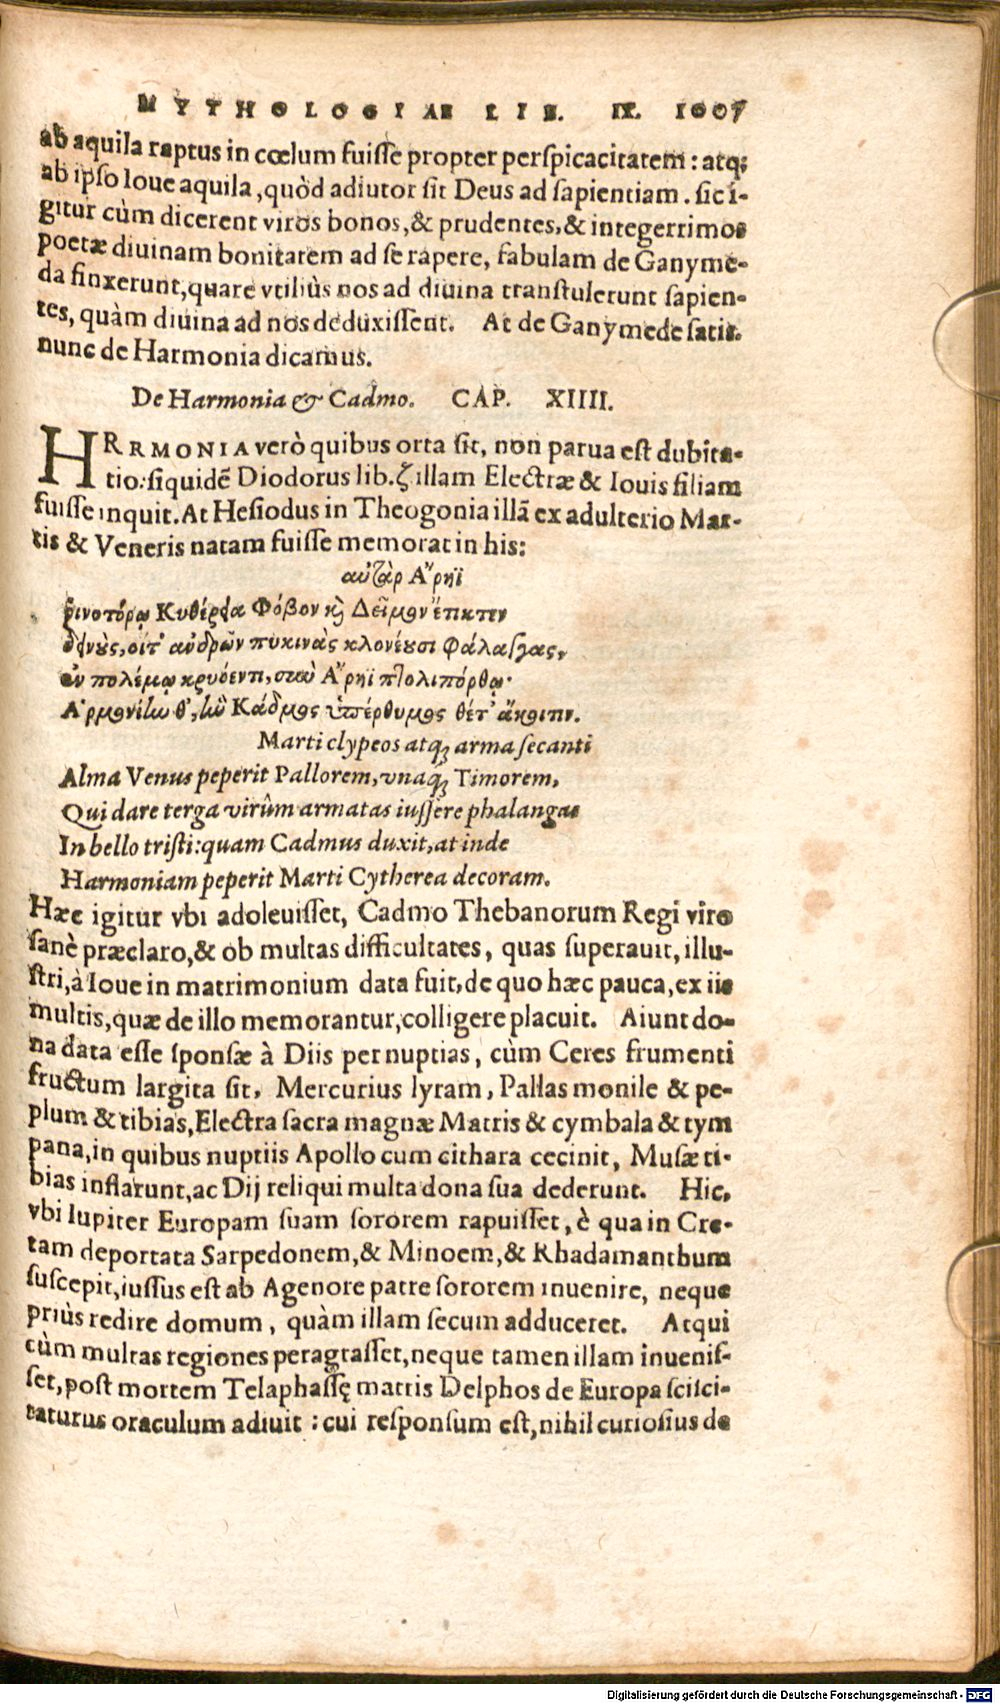 MYTHOLOGIAE LIB. IX. 1007
ab aquila raptus in cœlum fuiſſe propter perſpicacitatem : atq;
ab ipſo Ioue aquila, quòd adiutor ſit Deus ad ſapientiam. ſic i-
gitur cùm dicerent viros bonos, & prudentes, & integerrimos
poetæ diuinam bonitatem ad ſe rapere, fabulam de Ganyme-
da finxerunt, quare vtiliùs nos ad diuina tranſtulerunt ſapien-
tes, quàm diuina ad nos deduxiſſent. At de Ganymede ſatis.
nunc de Harmonia dicamus.
De Harmonia & Cadmo. CAP. XIIII.
HRRMONIA verò quibus orta ſit, non parua eſt dubita-
tio: ſiquidē Diodorus lib. ζ illam Electræ & Iouis filiam
fuiſſe inquit. At Heſiodus in Theogonia illā ex adulterio Mar-
tis & Veneris natam fuiſſe memorat in his:
αὐτὰρ Ἄρηϊ
ῥινοτόρῳ Κυθέρεια Φόβον καὶ Δεῖμον ἔτικτεν
δεινοὺς, οἵτ' ἀνδρῶν πυκινὰς κλονέουσι φάλαγγας,
ἐν πολέμῳ κρυόεντι, σὺν Ἄρηϊ πτολιπόρθῳ·
Ἁρμονίην θ', ἣν Κάδμος ὑπέρθυμος θέτ' ἄκοιτιν.
Marti clypeos atq; arma ſecanti
Alma Venus peperit Pallorem, vnaq; Timorem,
Qui dare terga virûm armatas iuſſere phalangas
In bello triſti: quam Cadmus duxit, at inde
Harmoniam peperit Marti Cytherea decoram.
Hæc igitur vbi adoleuiſſet, Cadmo Thebanorum Regi viro
ſanè præclaro, & ob multas difficultates, quas ſuperauit, illu-
ſtri, à Ioue in matrimonium data fuit, de quo hæc pauca, ex iis
multis, quæ de illo memorantur, colligere placuit. Aiunt do-
na data eſſe ſponſæ à Diis per nuptias, cùm Ceres frumenti
fructum largita ſit, Mercurius lyram, Pallas monile & pe-
plum & tibias, Electra ſacra magnæ Matris & cymbala & tym
pana, in quibus nuptiis Apollo cum cithara cecinit, Muſæ ti-
bias inflarunt, ac Dij reliqui multa dona ſua dederunt. Hic,
vbi Iupiter Europam ſuam ſororem rapuiſſet, è qua in Cre-
tam deportata Sarpedonem, & Minoem, & Rhadamanthum
ſuſcepit, iuſſus eſt ab Agenore patre ſororem inuenire, neque
priùs redire domum, quàm illam ſecum adduceret. Atqui
cùm multas regiones peragraſſet, neque tamen illam inueniſ-
ſet, poſt mortem Telaphaſſę matris Delphos de Europa ſciſci-
taturus oraculum adiuit : cui reſponſum eſt, nihil curioſius de
Digitalisierung gefördert durch die Deutsche Forschungsgemeinschaft - DFG